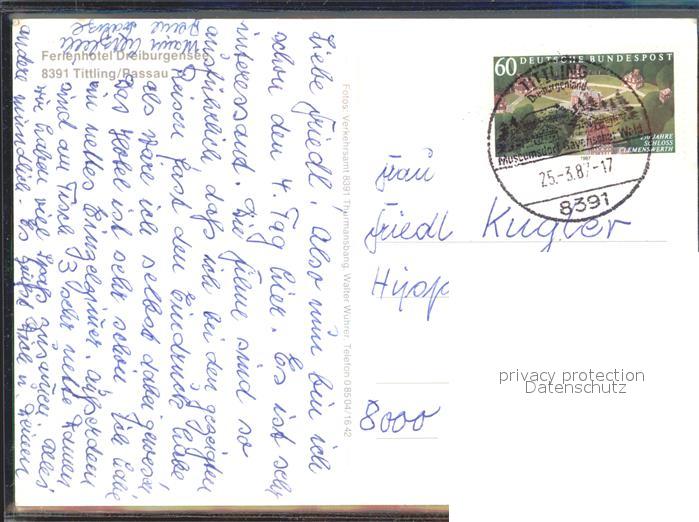 Ferienhotel Dreiburgensee
8391 Tittling/Passau
Liebe Friedl! Also nun bin ich
schon den 4. Tag hier. Es ist sehr
interessant. Die Filme sind so
ausführlich, daß ich bei den gezeigten
Reisen fast den Eindruck habe
als wäre ich selbst dabei gewesen
Das Hotel ist sehr schön. Ich habe
ein nettes Einzelzimmer. Außerdem
sind am Tisch 3 sehr nette Damen
wir haben viel Spaß zusammen. Alles
andere mündlich. Es grüßt Dich u. Deinen
Mann herzlich
Deine
Fotos: Verkehrsamt 8391 Thurmansbang, Walter Wührer, Telefon 08504/1642
60 DEUTSCHE BUNDESPOST
250 JAHRE
SCHLOSS
CLEMENSWERTH
1987
TITTLING
Dreiburgenland
Museumsdorf Bayerischer Wald
25.-3.87-17
8391
Frau
Friedl Kugler
8000
privacy protection
Datenschutz